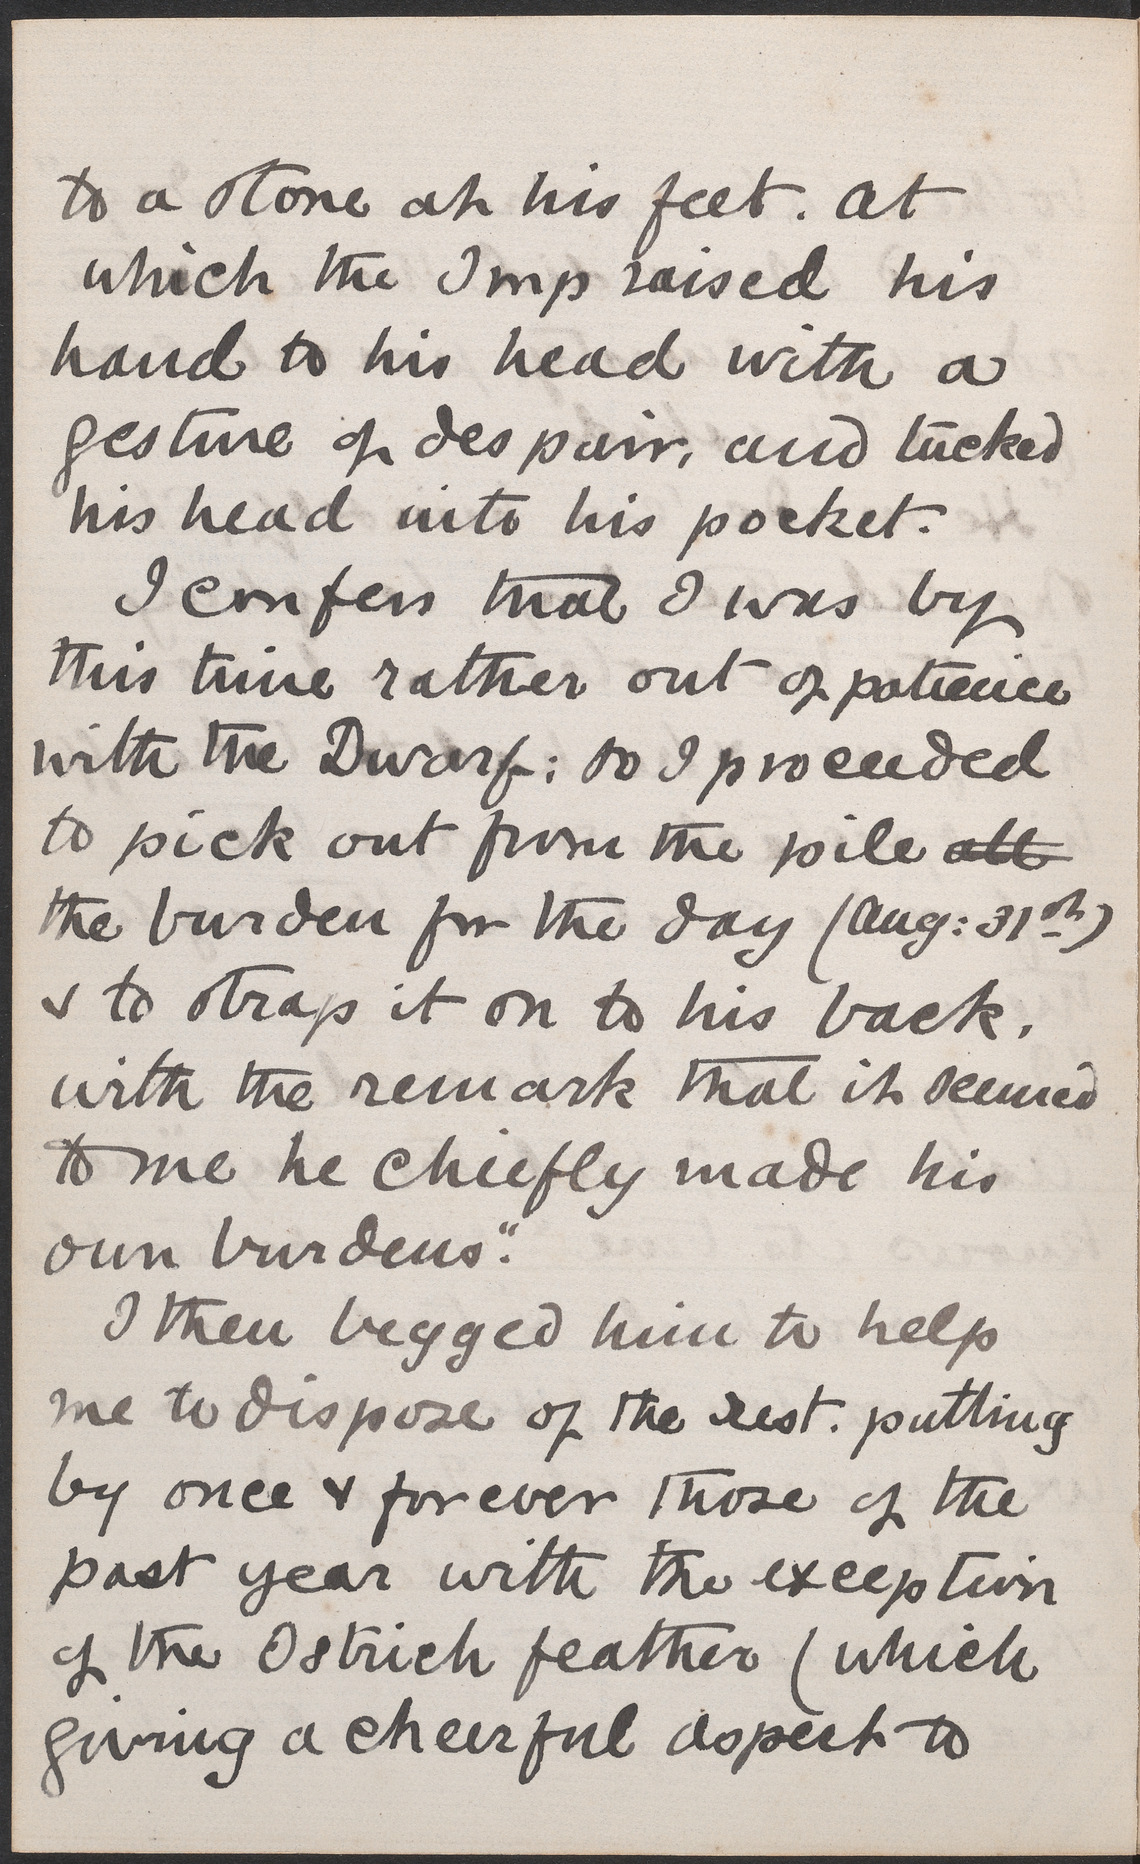 to a stone at his feet. At
which the Imp raised his
hand to his head with a
gesture of despair, and tucked
his head into his pocket.
I confess that I was by
this time rather out of patience
with the Dwarf: so I proceeded
to pick out from the pile all
the burden for the day (Aug: 31st)
& to strap it on to his back,
with the remark that it seemed
to me he chiefly made his
own burdens".
I then begged him to help
me to dispose of the rest. putting
by once & forever those of the
past year with the exception
of the Ostrich feather (which
giving a cheerful aspect to